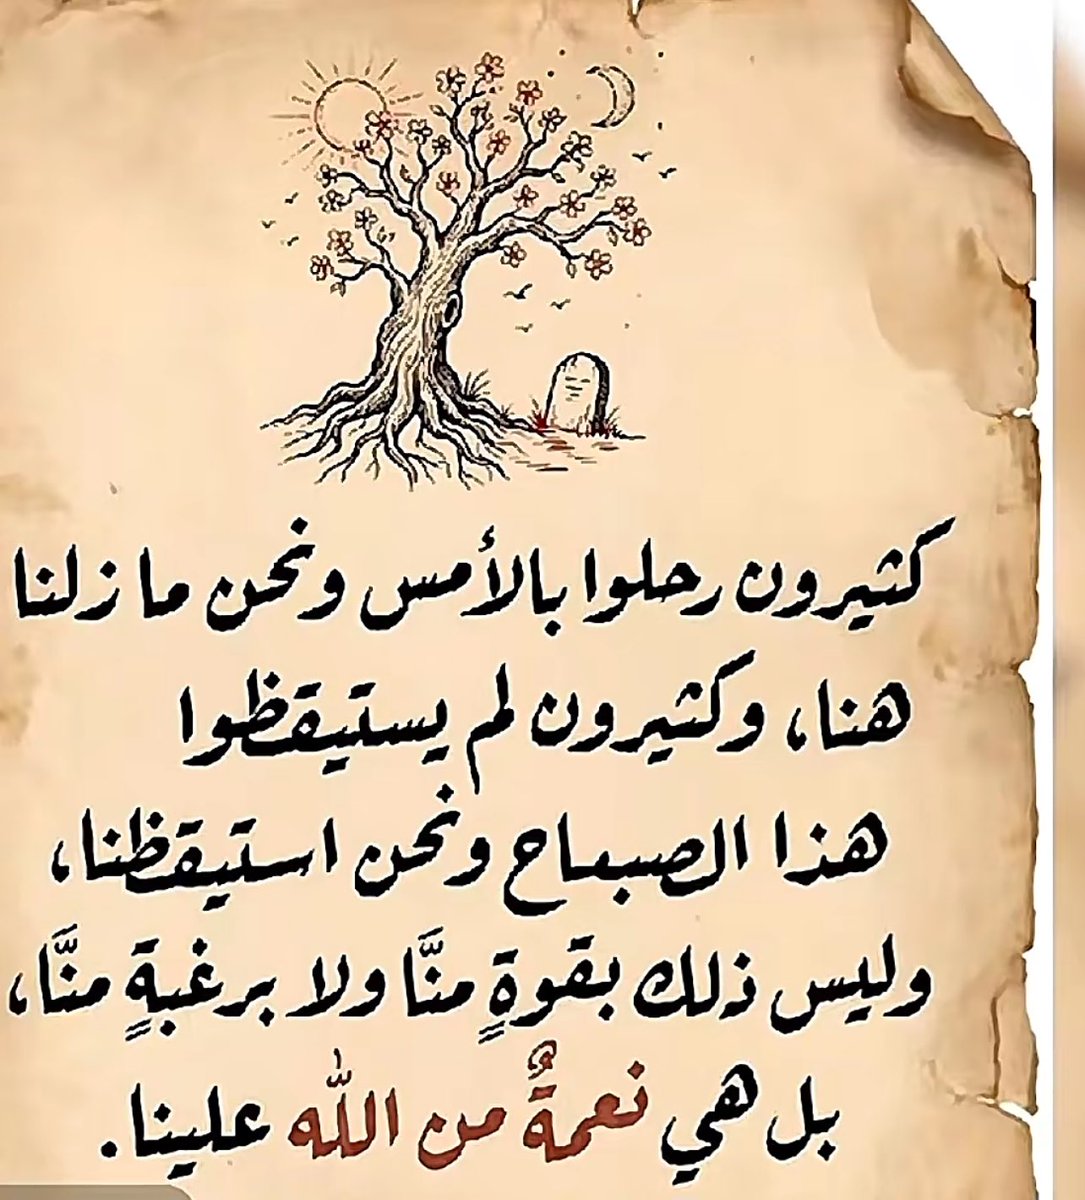 كثيرون رحلوا بالأمس ونحن ما زلنا
هنا، وكثيرون لم يستيقظوا
هذا الصباح ونحن استيقظنا،
وليس ذلك بقوةٍ منَّا ولا برغبةٍ منَّا،
بل هي نعمةٌ من اللّٰه علينا.